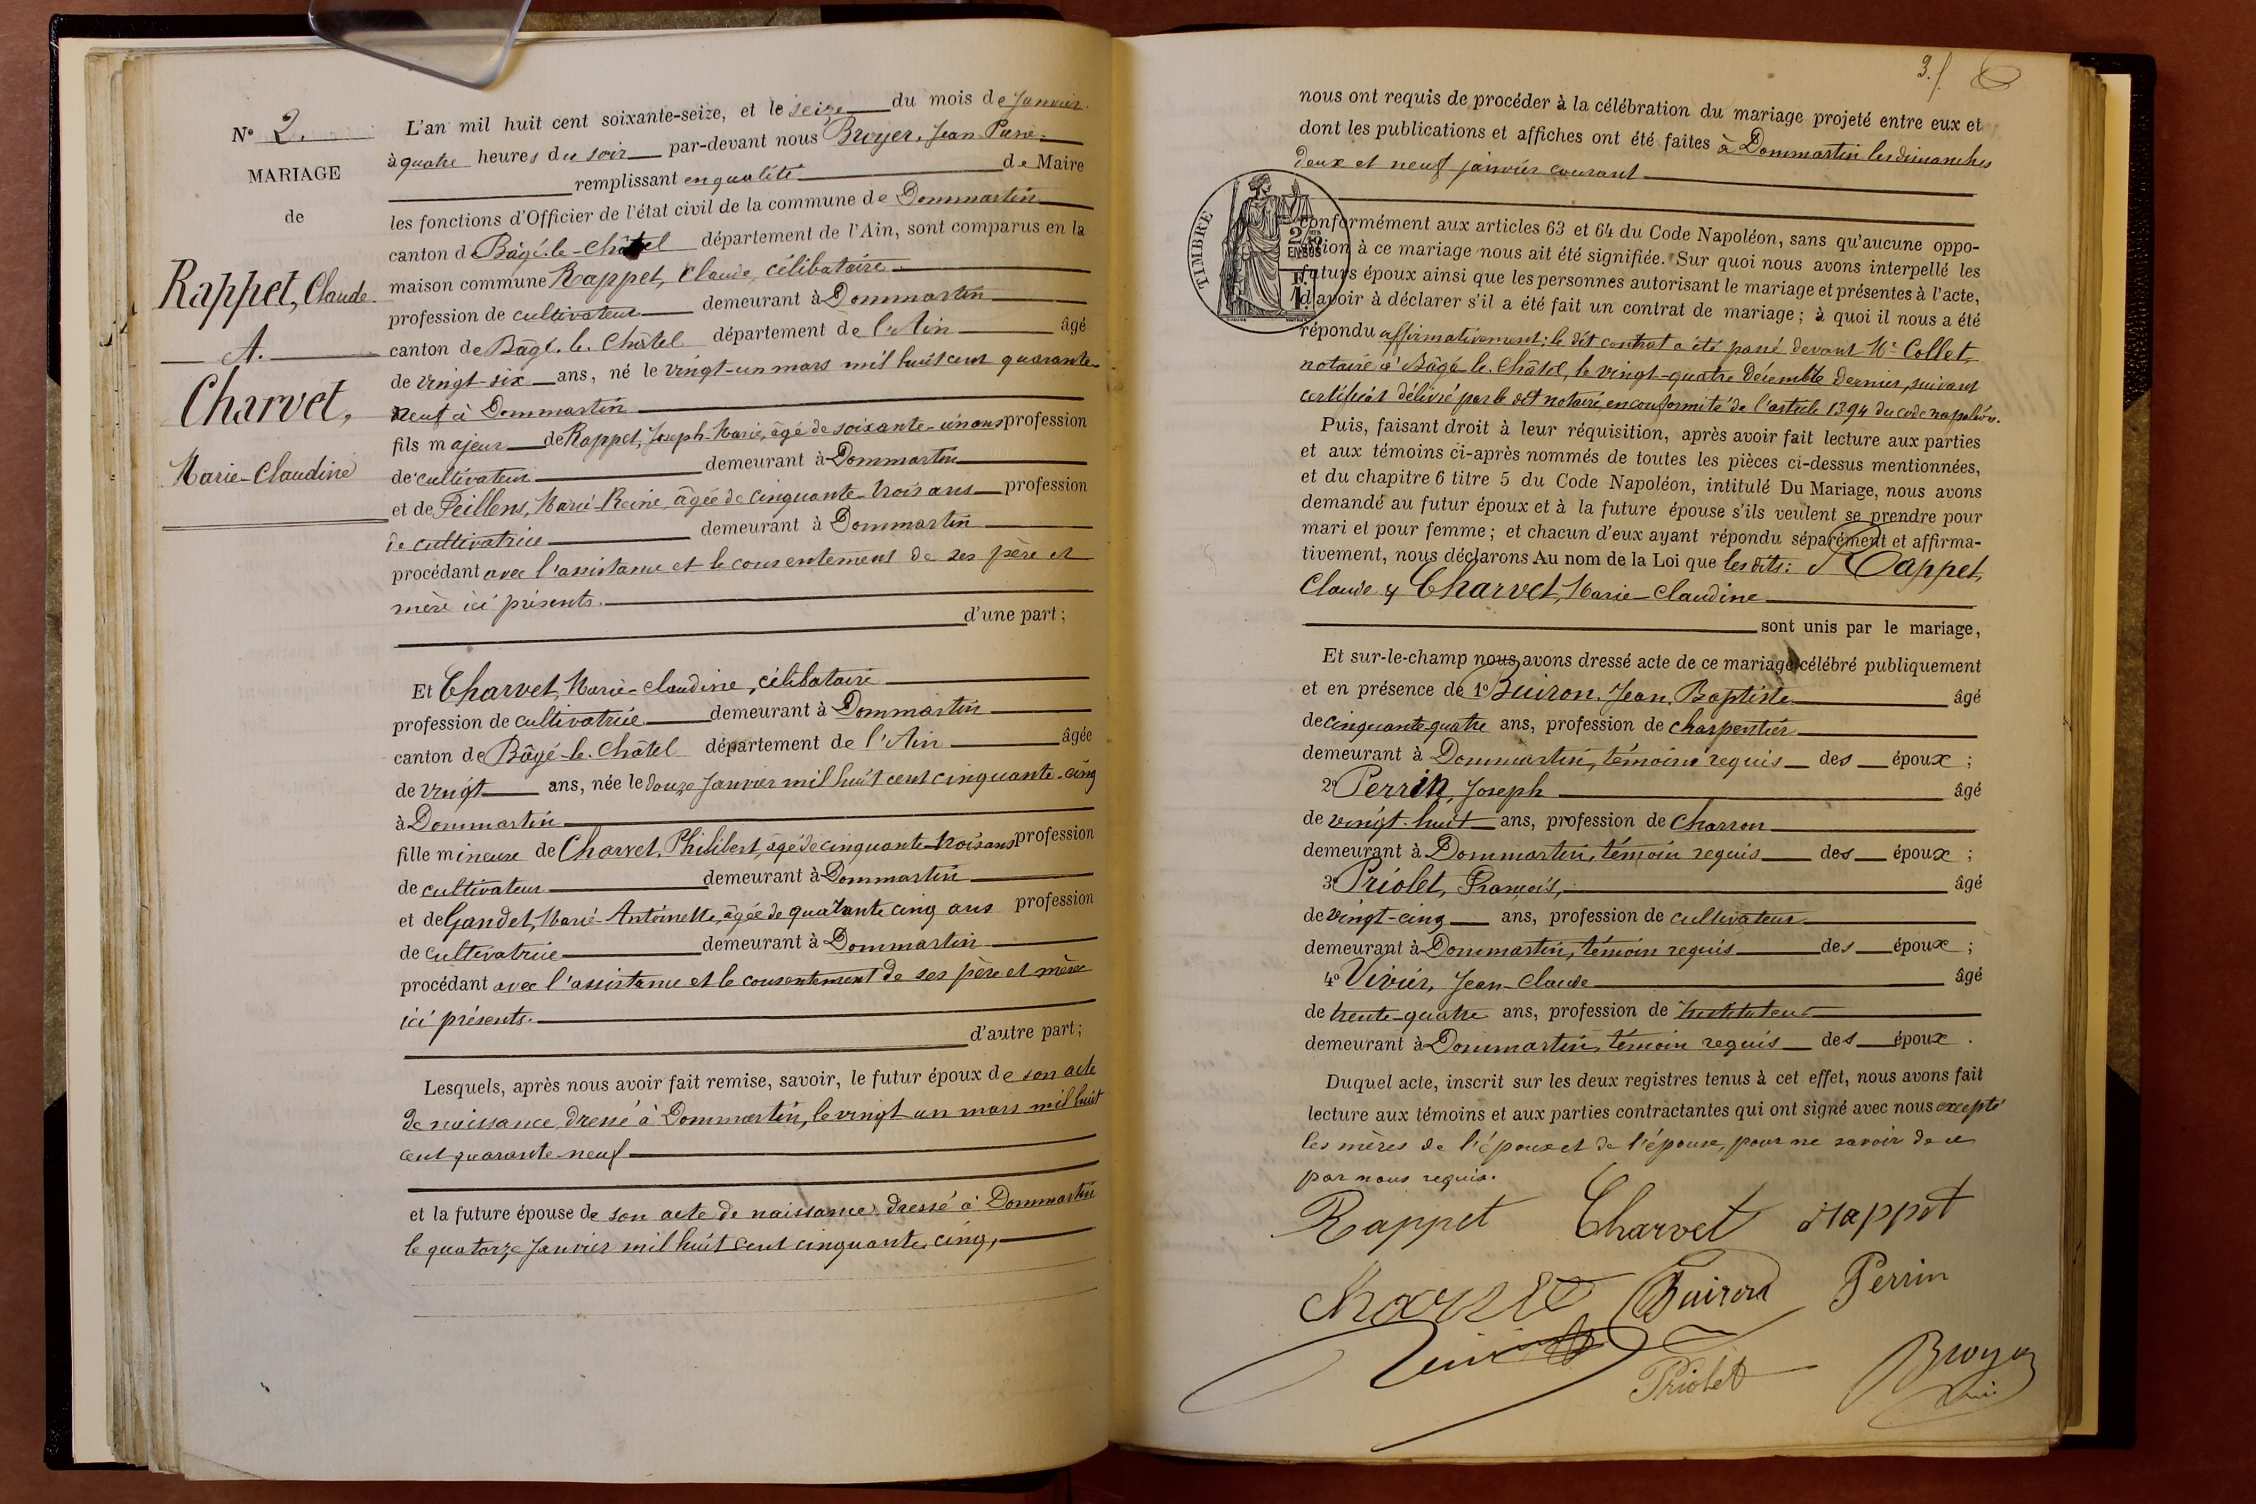 N° 2.
MARIAGE
de
Rappet, Claude
A.
Charvet,
Marie-Claudine
L'an mil huit cent soixante-seize, et le seize du mois de Janvier
à quatre heures du soir par-devant nous Broyer, Jean Pierre
remplissant en qualité de Maire
les fonctions d'Officier de l'état civil de la commune de Dommartin
canton d Bâgé-le-Châtel département de l'Ain, sont comparus en la
maison commune Rappet, Claude, célibataire
profession de cultivateur demeurant à Dommartin
canton de Bâgé-le-Châtel département de l'Ain âgé
de vingt-six ans, né le vingt-un mars mil huit cent quarante-
neuf à Dommartin
fils majeur de Rappet, Joseph-Marie, âgé de soixante-un ans profession
de cultivateur demeurant à Dommartin
et de Feillens, Marie-Reine, âgée de cinquante-trois ans profession
de cultivatrice demeurant à Dommartin
procédant avec l'assistance et le consentement de ses père et
mère ici présents.
d'une part;
Et Charvet, Marie-Claudine, célibataire
profession de cultivatrice demeurant à Dommartin
canton de Bâgé-le-Châtel département de l'Ain âgée
de vingt ans, née le douze Janvier mil huit cent cinquante-cinq
à Dommartin
fille mineure de Charvet, Philibert, âgé de cinquante-trois ans profession
de cultivateur demeurant à Dommartin
et de Gandet, Marie-Antoinette, âgée de quarante cinq ans profession
de cultivatrice demeurant à Dommartin
procédant avec l'assistance et le consentement de ses père et mère
ici présents.
d'autre part;
Lesquels, après nous avoir fait remise, savoir, le futur époux de son acte
de naissance dressé à Dommartin, le vingt un mars mil huit
cent quarante-neuf
et la future épouse de son acte de naissance dressé à Dommartin
le quatorze Janvier mil huit cent cinquante cinq,
3.
nous ont requis de procéder à la célébration du mariage projeté entre eux et
dont les publications et affiches ont été faites à Dommartin les dimanches
deux et neuf janvier courant
TIMBRE
conformément aux articles 63 et 64 du Code Napoléon, sans qu'aucune oppo-
sition à ce mariage nous ait été signifiée. Sur quoi nous avons interpellé les
futurs époux ainsi que les personnes autorisant le mariage et présentes à l'acte,
d'avoir à déclarer s'il a été fait un contrat de mariage; à quoi il nous a été
répondu affirmativement; le dit contrat a été passé devant Me Collet,
notaire à Bâgé-le-Châtel, le vingt-quatre Décembre dernier, suivant
certificat délivré par le dit notaire, en conformité de l'article 1394 du code napoléon.
Puis, faisant droit à leur réquisition, après avoir fait lecture aux parties
et aux témoins ci-après nommés de toutes les pièces ci-dessus mentionnées,
et du chapitre 6 titre 5 du Code Napoléon, intitulé Du Mariage, nous avons
demandé au futur époux et à la future épouse s'ils veulent se prendre pour
mari et pour femme; et chacun d'eux ayant répondu séparément et affirma-
tivement, nous déclarons Au nom de la Loi que les dits: Rappet,
Claude & Charvet, Marie-Claudine
sont unis par le mariage,
Et sur-le-champ nous avons dressé acte de ce mariage célébré publiquement
et en présence de 1° Buiron, Jean, Baptiste âgé
de cinquante-quatre ans, profession de charpentier
demeurant à Dommartin, témoin requis des époux;
2° Perrin, Joseph âgé
de vingt-huit ans, profession de charron
demeurant à Dommartin, témoin requis des époux;
3° Priolet, François, âgé
de vingt-cinq ans, profession de cultivateur
demeurant à Dommartin, témoin requis des époux;
4° Vivier, Jean-Claude âgé
de trente-quatre ans, profession de Instituteur
demeurant à Dommartin, témoin requis des époux.
Duquel acte, inscrit sur les deux registres tenus à cet effet, nous avons fait
lecture aux témoins et aux parties contractantes qui ont signé avec nous excepté
les mères de l'époux et de l'épouse, pour ne savoir de ce
par nous requis.
Rappet Charvet Rappet
Charvet Buiron Perrin
Vivier Priolet Broyer